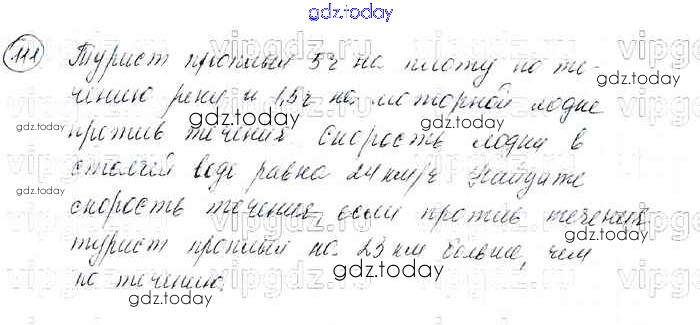 gdz.today
111 Турист проплыл 5 ч на плоту по те-
чению реки и 1,5 ч на моторной лодке
gdz.today
против течения. Скорость лодки в
gdz.today
стоячей воде равна 24 км/ч. Найдите
gdz.today
скорость течения, если против течения
турист проплыл на 23 км больше, чем
gdz.today
по течению.
gdz.today